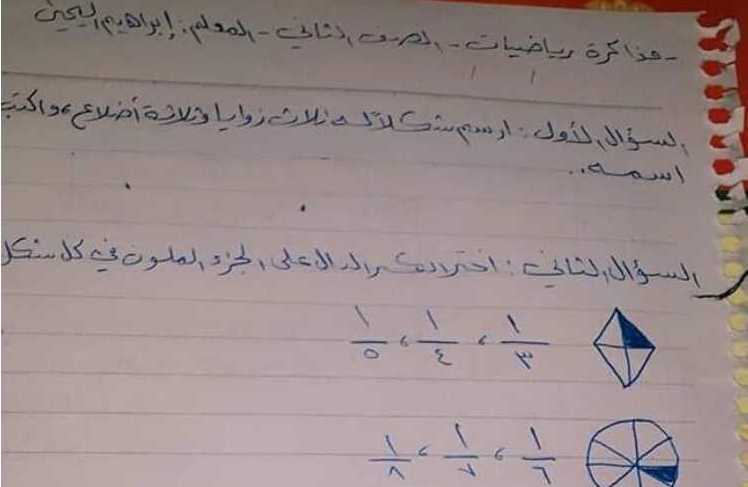 - مذاكرة رياضيات - الصف الثاني - المعلم: إبراهيم
السؤال الأول: ارسم شكلاً له ثلاث زوايا وثلاثة أضلاع، واكتب
اسمه..
السؤال الثاني: اختر الكسر الدال على الجزء الملون في كل شكل
١/٣ ، ١/٤ ، ١/٥
١/٦ ، ١/٧ ، ١/٨